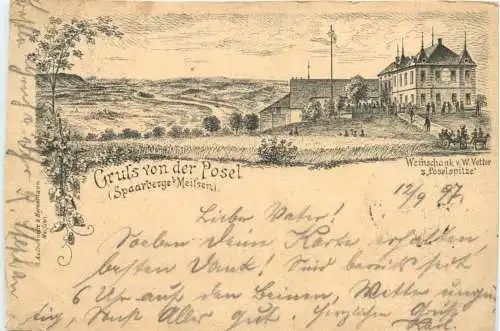 Gruſs von der Posel
(Spaarberge b. Meiſsen).
Weinschank v. W. Vetter
z. „Poselspitze“
12/9 97.
Lieber Vater!
Soeben Deine Karte erhalten
besten Dank! Sind bereits seit
6 Uhr auf den Beinen, Wetter ungün
tig, sonst Alles gut. Herzlichen Gruß